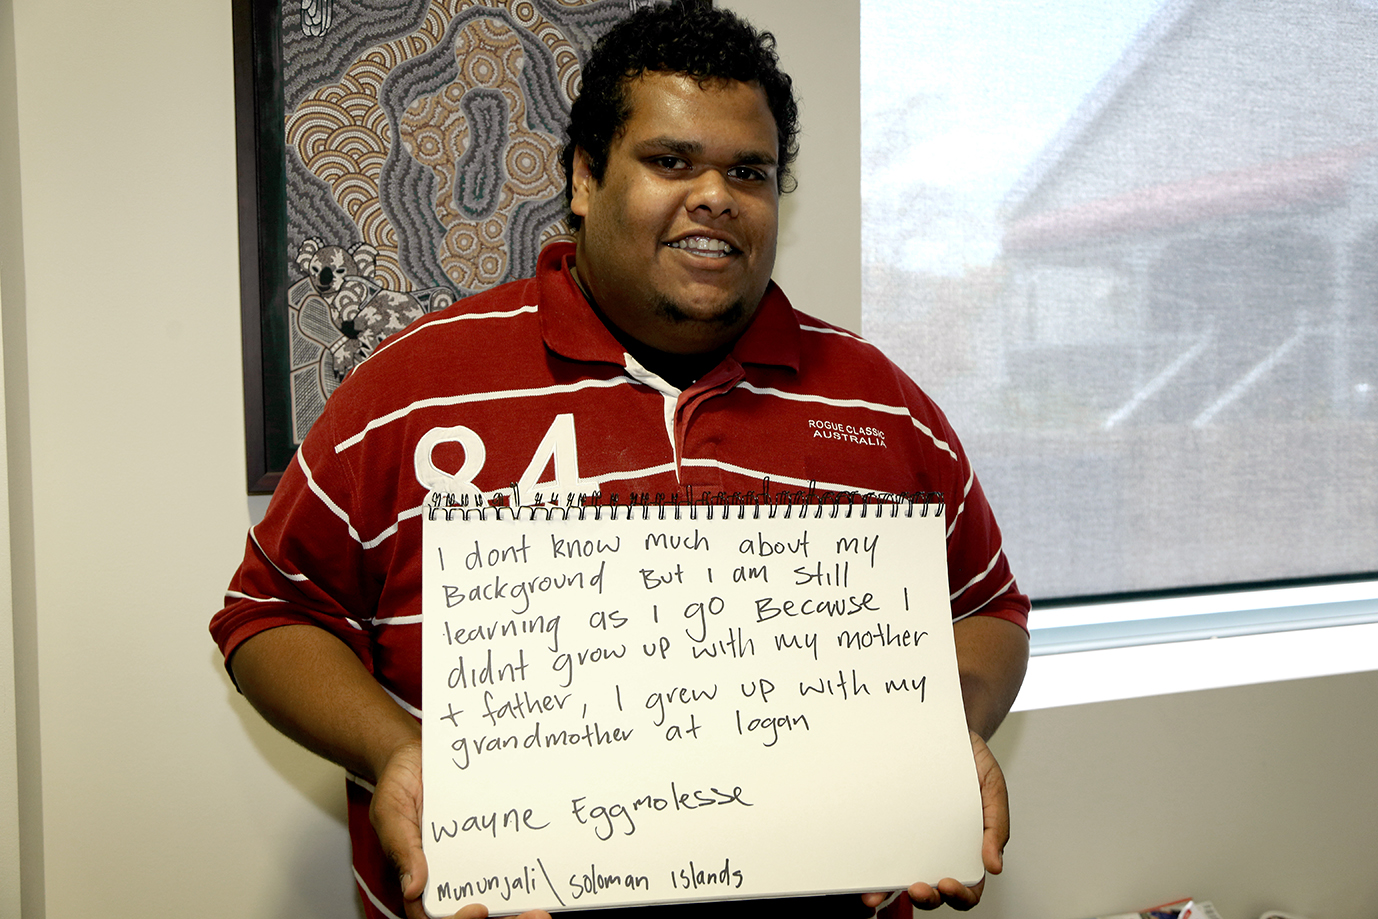 84
ROGUE CLASSIC
AUSTRALIA
I dont know much about my
Background But I am still
learning as I go Because I
didnt grow up with my mother
+ father, I grew up with my
grandmother at logan
Wayne Eggmolesse
mununjali \ soloman islands